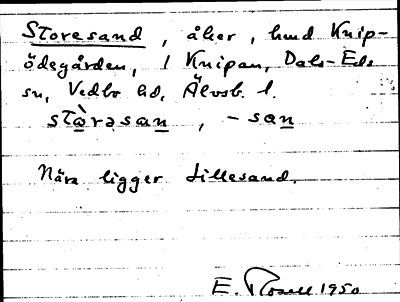 Storesand, åker, hmd Knip-
ödegården, 1 Knipan, Dals-Eds
sn, Vedbo hd, Älvsb. l.
stàrəsan, -san
Nära ligger Lillesand.
E. Rosell 1950